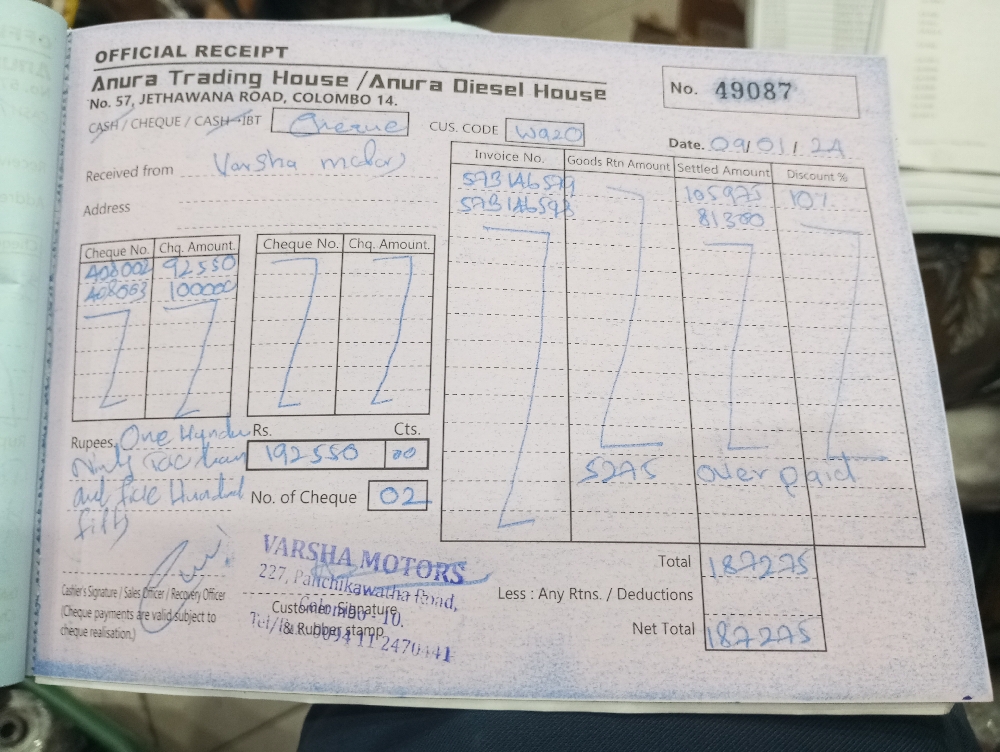 OFFICIAL RECEIPT
Anura Trading House /Anura Diesel House
No. 57, JETHAWANA ROAD, COLOMBO 14.
No. 49087
CASH / CHEQUE / CASH-IBT Cheque CUS. CODE W920
Date. 09/01/24
Received from Varsha motors
Address
Invoice No. Goods Rtn Amount Settled Amount Discount %
573 1A6579 105975 10%
573 1A6598 81300
Cheque No. Chq. Amount. Cheque No. Chq. Amount.
92550
100000
5275 over paid
Rupees, One Hundred
Ninty Two
and five Hundred
fifty
Rs. Cts.
192550 00
No. of Cheque 02
Total 187275
Less : Any Rtns. / Deductions
Net Total 187275
Cashier's Signature / Sales Officer / Recovery Officer
(Cheque payments are valid subject to
cheque realisation.)
VARSHA MOTORS
227, Panchikawatha Road,
Colombo - 10.
Customer Signature
& Rubber stamp
0094 11 2470441